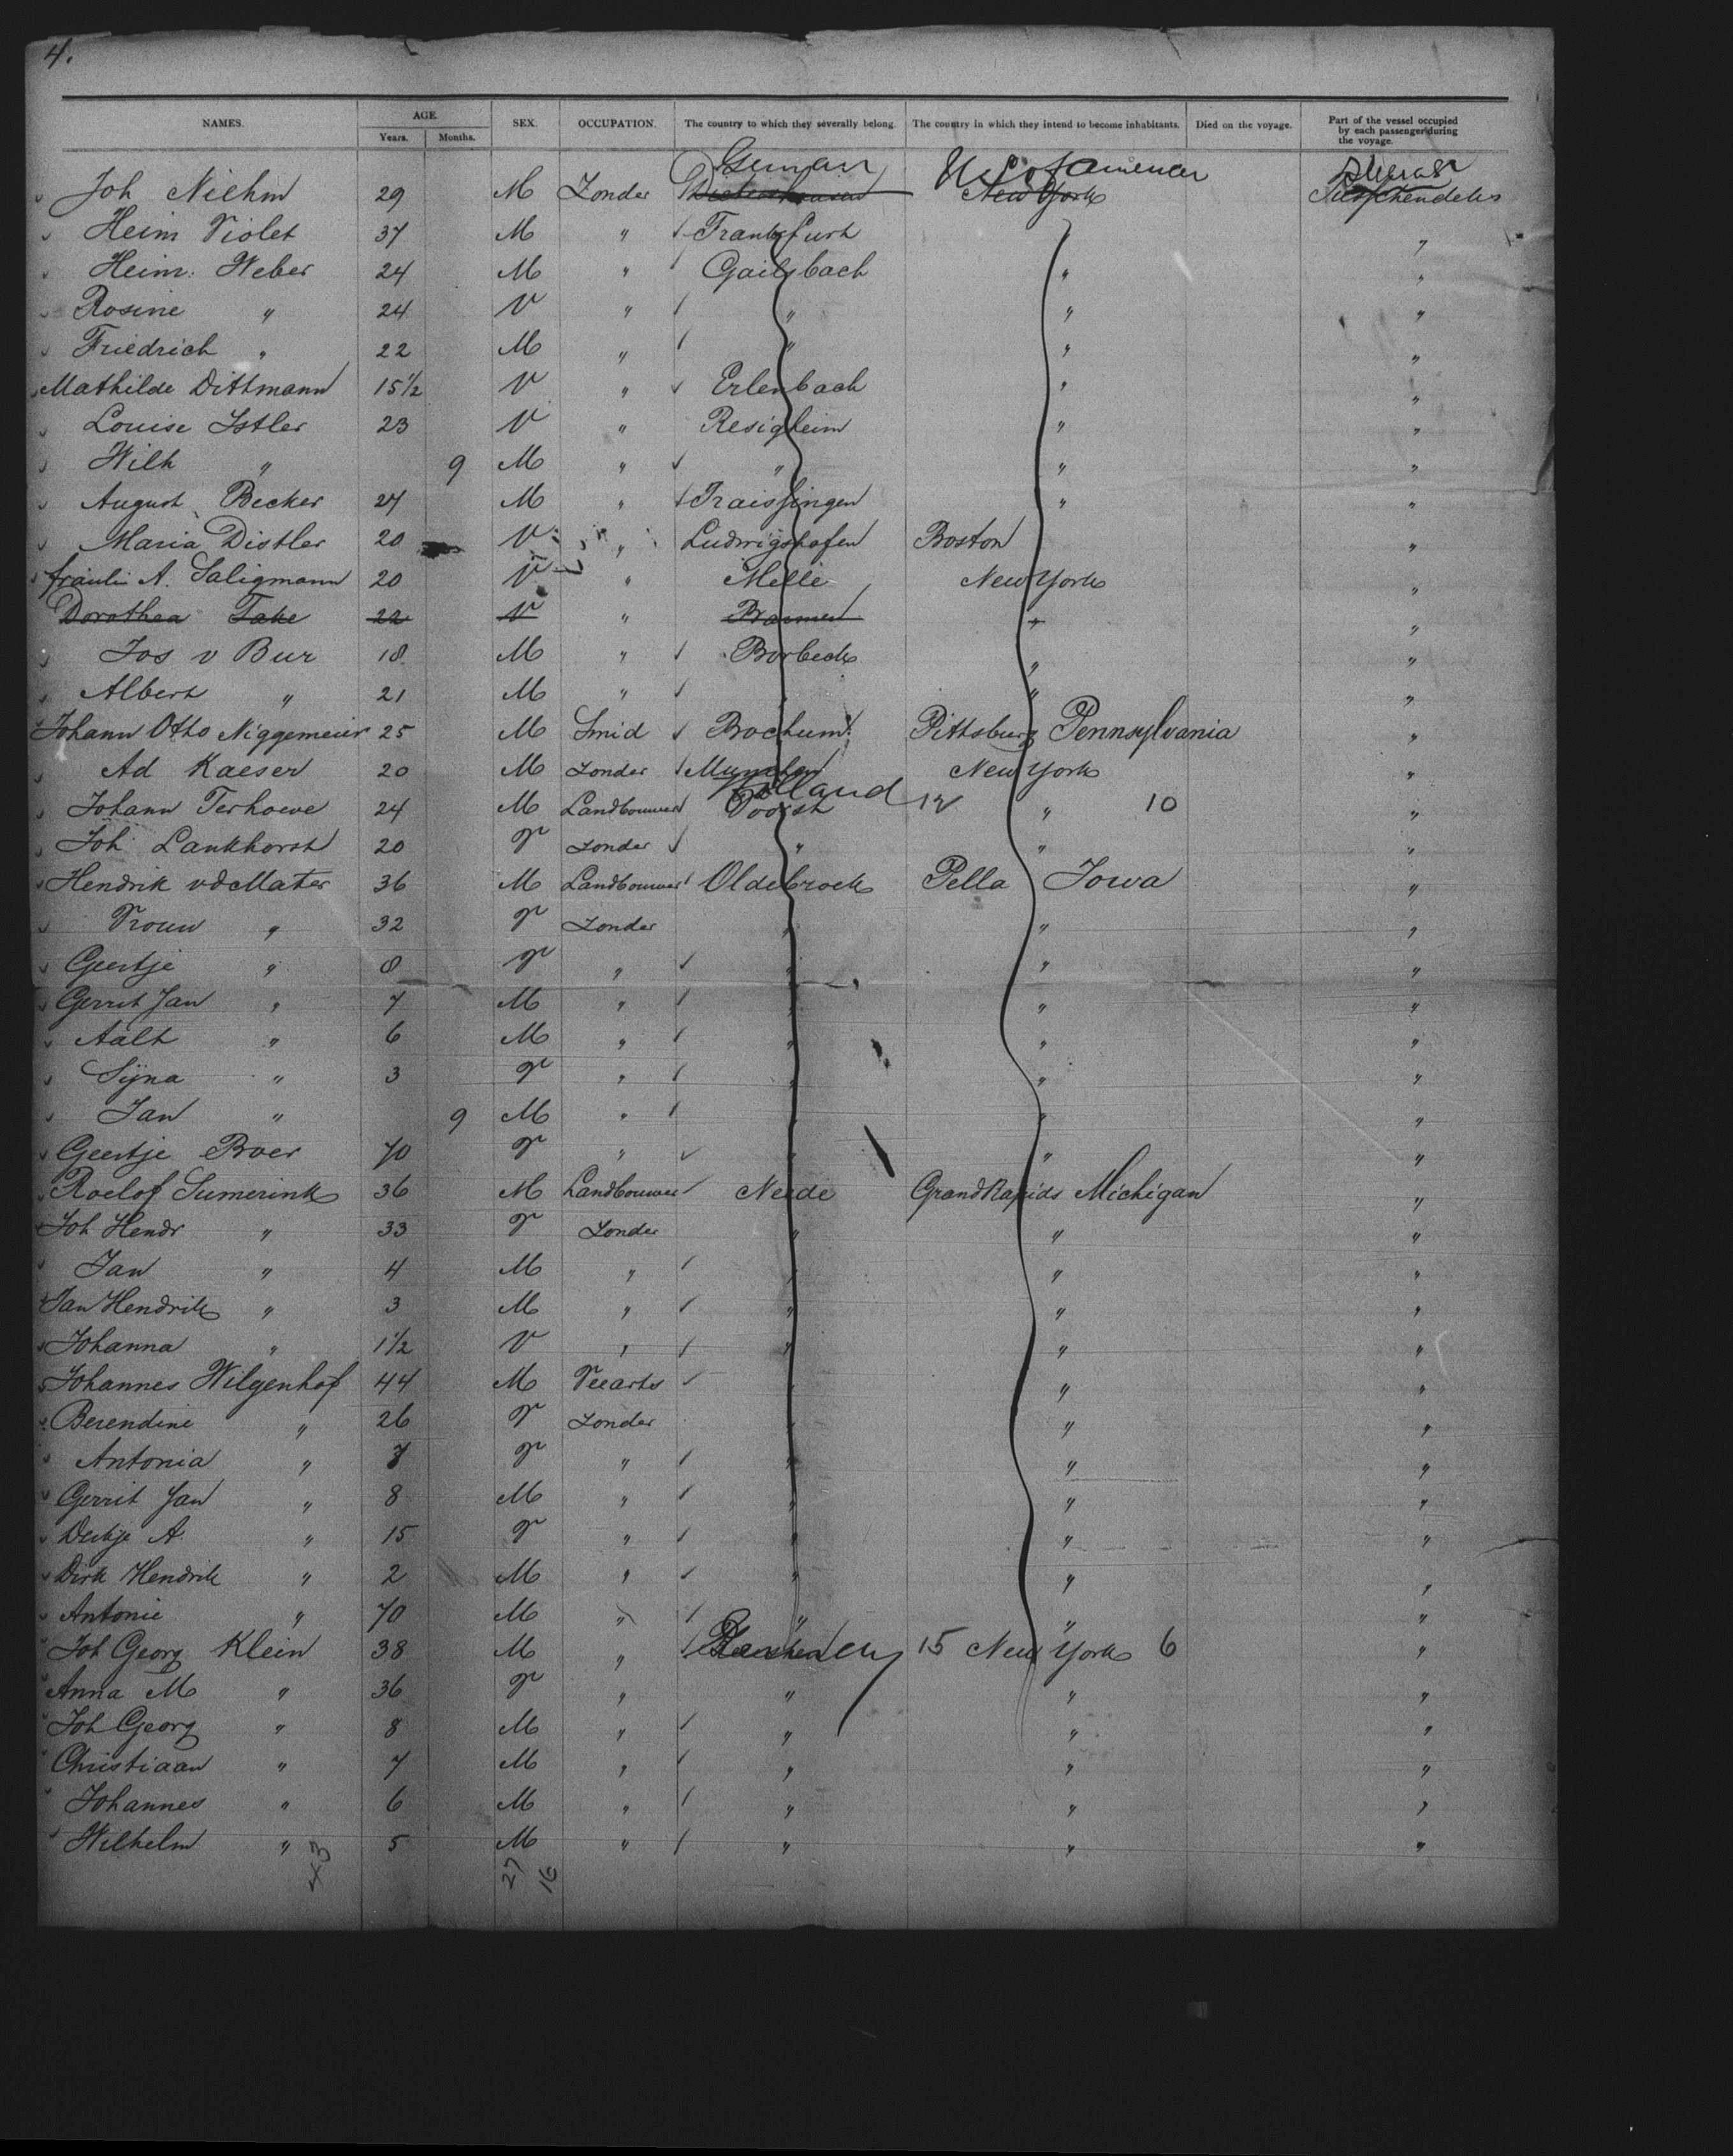 4.
NAMES. AGE. SEX. OCCUPATION. The country to which they severally belong. The country in which they intend to become inhabitants. Died on the voyage. Part of the vessel occupied by each passenger during the voyage.
Years. Months.
German U S of America
Joh Niehm 29 M Zonder New York Tusschendeks
Heinr Violet 37 M " Frankfurt "
Heinr. Weber 24 M " Gailsbach " "
Rosine " 24 V " " " "
Friedrich " 22 M " " " "
Mathilde Dittmann 15 1/2 V " Erlenbach " "
Louise Istler 23 V " Resigheim " "
Wilh " 9 M " " " "
August Becker 27 M " Traissingen " "
Maria Distler 20 V " Ludwigshafen Boston "
fräulin A. Saligmann 20 V " Melle New York "
Dorothea Take 22 V " Barmen " "
Jos v Bur 18 M " Borbeck " "
Albert " 21 M " " "
Johann Otto Niggemeier 25 M Smid Bochum Pittsburg Pennsylvania "
Ad Kaeser 20 M Zonder Munchen New York "
Holland
Johann Terhoeve 24 M Landbouwer Voorst 12 " 10 "
Joh Lankhorst 20 V Zonder " " "
Hendrik vd Mater 36 M Landbouwer Oldebroek Pella Iowa "
Vrouw " 32 V Zonder " " "
Geertje " 8 V " " " "
Gerrit Jan " 7 M " " " "
Aalt " 6 M " " " "
Sijna " 3 V " " " "
Jan " 9 M " " " "
Geertje Boer 70 V " " " "
Roelof Sumerink 36 M Landbouwer Neede Grand Rapids Michigan "
Joh Hendr " 33 V Zonder " " "
Jan " 4 M " " " "
Jan Hendrik " 3 M " " " "
Johanna " 1 1/2 V " " " "
Johannes Wilgenhof 44 M Veearts " " "
Berendine " 26 V Zonder " " "
Antonia " 7 V " " " "
Gerrit Jan " 8 M " " " "
Derkje A. " 15 V " " " "
Dirk Hendrik " 2 M " " " "
Antonie " 70 M " " " "
Joh Georg Klein 38 M " 15 New York 6 "
Anna M " 36 V " " " "
Joh Georg " 8 M " " " "
Christiaan " 7 M " " " "
Johannes " 6 M " " " "
Wilhelm " 5 M " " " "
43 27 16